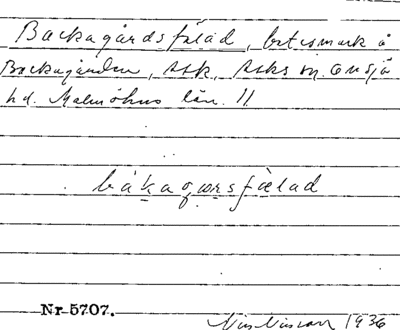 Backagårdsfälad, betesmark å
Backagården, Ask, Asks sn. Onsjö
hd. Malmöhus län. 11
bákagɷrsfælad
Nr 5707.
Nils Nilsson 1936